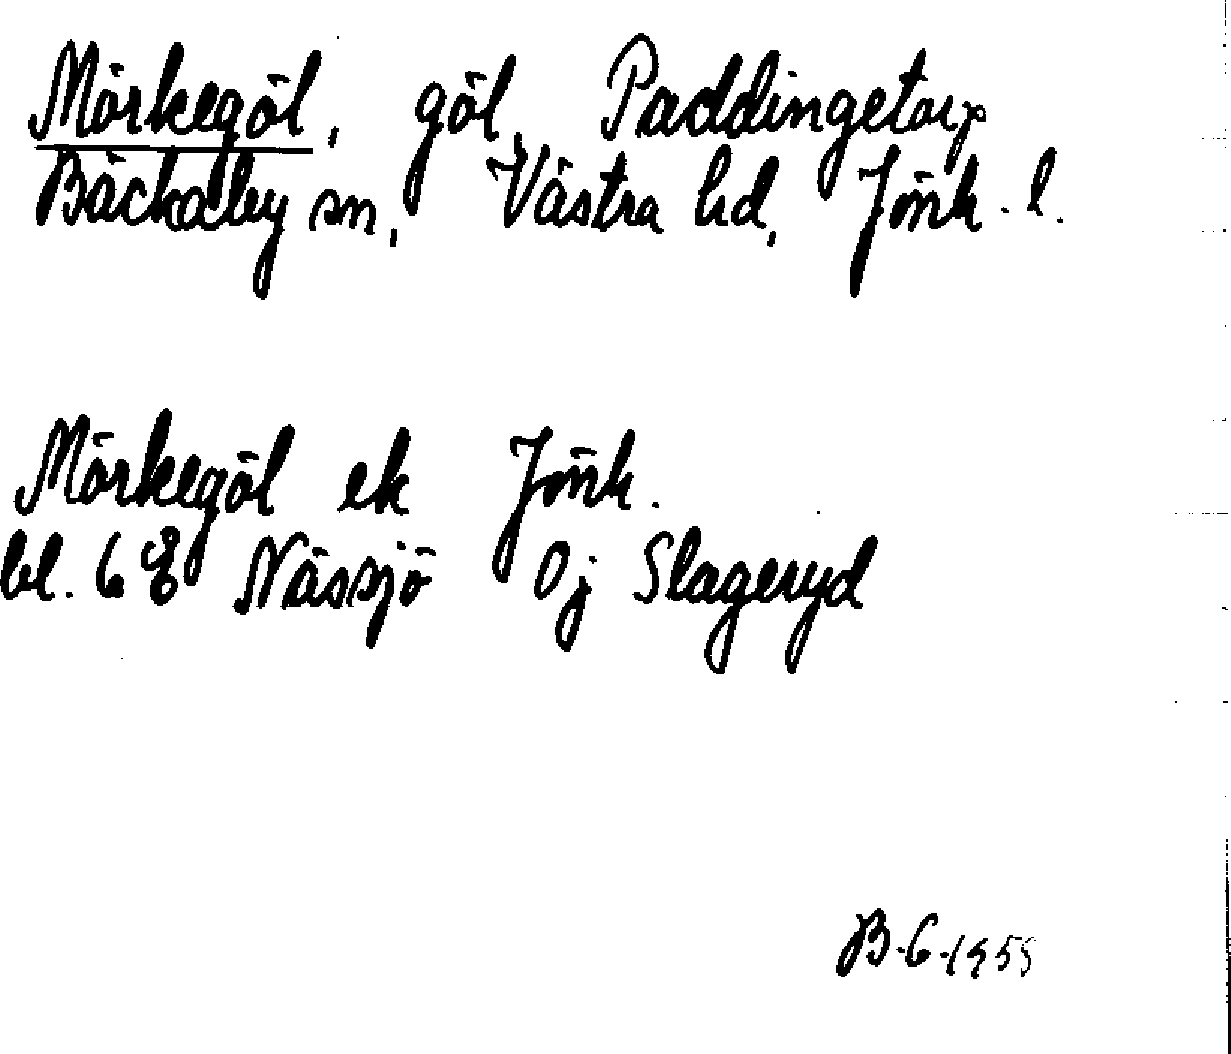 Mörkegöl, göl, Paddingetorp
Bäckaby sn, Västra hd, Jönk. l.
Mörkegöl ek Jönk.
bl. 6 E Nässjö Oj Slageryd
B-G-1955